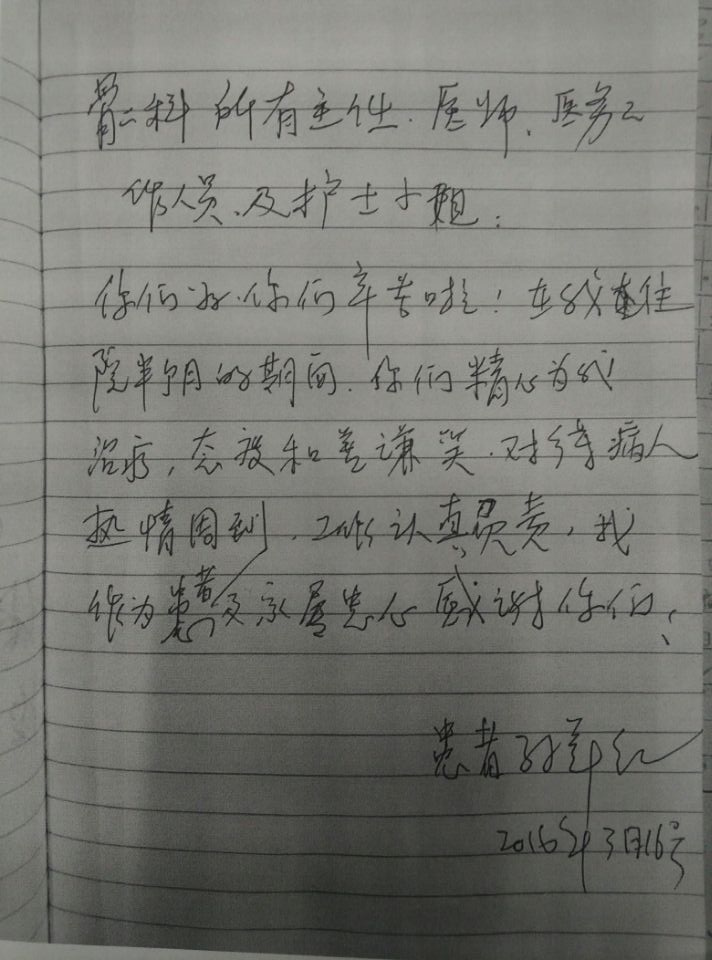 骨二科所有主任.医师.医务工
作人员、及护士小姐:
你们好.你们辛苦啦!在我住
院半月的期间.你们精心为我
治疗,态度和善谦笑.对待病人
热情周到、工作认真负责,我
作为患者及家属忠心感谢你们:
患者
2016年3月16号